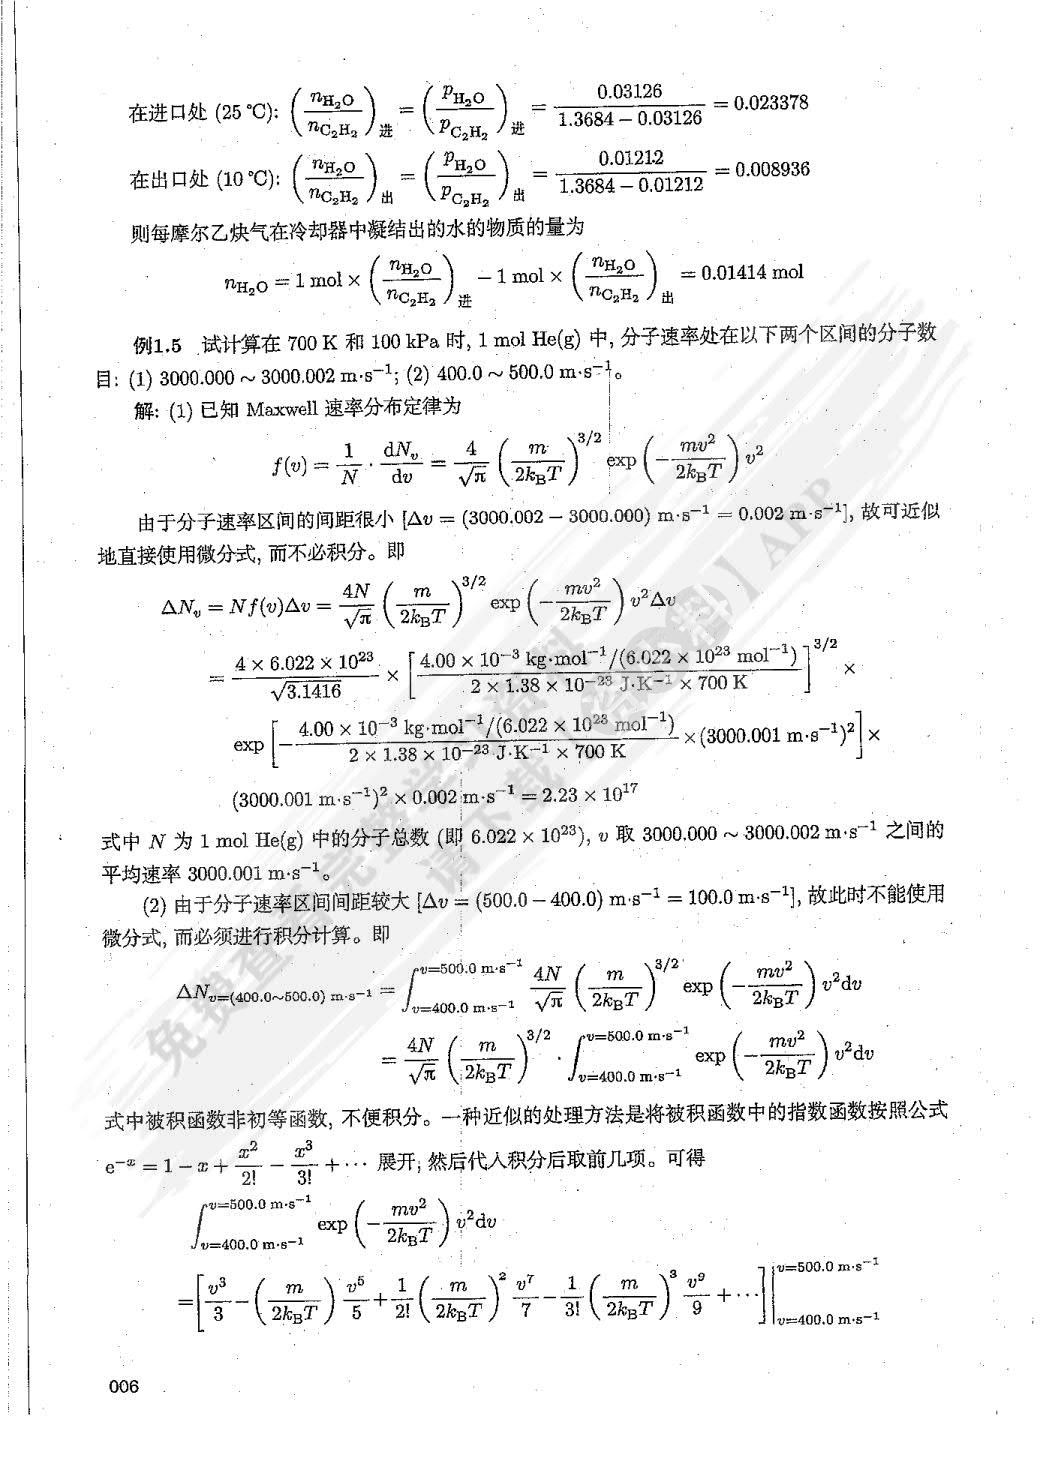 在进口处 (25 ℃): (n_{H₂O}/n_{C₂H₂})_进 = (p_{H₂O}/p_{C₂H₂})_进 = 0.03126/(1.3684 − 0.03126) = 0.023378
在出口处 (10 ℃): (n_{H₂O}/n_{C₂H₂})_出 = (p_{H₂O}/p_{C₂H₂})_出 = 0.01212/(1.3684 − 0.01212) = 0.008936
则每摩尔乙炔气在冷却器中凝结出的水的物质的量为
n_{H₂O} = 1 mol × (n_{H₂O}/n_{C₂H₂})_进 − 1 mol × (n_{H₂O}/n_{C₂H₂})_出 = 0.01414 mol
例1.5 试计算在 700 K 和 100 kPa 时, 1 mol He(g) 中, 分子速率处在以下两个区间的分子数
目: (1) 3000.000 ~ 3000.002 m·s⁻¹; (2) 400.0 ~ 500.0 m·s⁻¹。
解: (1) 已知 Maxwell 速率分布定律为
f(v) = 1/N · dN_v/dv = 4/√π (m/2k_BT)^{3/2} exp(−mv²/2k_BT) v²
由于分子速率区间的间距很小 [Δv = (3000.002 − 3000.000) m·s⁻¹ = 0.002 m·s⁻¹], 故可近似
地直接使用微分式, 而不必积分。即
ΔN_v = Nf(v)Δv = 4N/√π (m/2k_BT)^{3/2} exp(−mv²/2k_BT) v²Δv
= 4 × 6.022 × 10²³/√3.1416 × [4.00 × 10⁻³ kg·mol⁻¹/(6.022 × 10²³ mol⁻¹)/2 × 1.38 × 10⁻²³ J·K⁻¹ × 700 K]^{3/2} ×
exp[−4.00 × 10⁻³ kg·mol⁻¹/(6.022 × 10²³ mol⁻¹)/2 × 1.38 × 10⁻²³ J·K⁻¹ × 700 K × (3000.001 m·s⁻¹)²] ×
(3000.001 m·s⁻¹)² × 0.002 m·s⁻¹ = 2.23 × 10¹⁷
式中 N 为 1 mol He(g) 中的分子总数 (即 6.022 × 10²³), v 取 3000.000 ~ 3000.002 m·s⁻¹ 之间的
平均速率 3000.001 m·s⁻¹。
(2) 由于分子速率区间间距较大 [Δv = (500.0 − 400.0) m·s⁻¹ = 100.0 m·s⁻¹], 故此时不能使用
微分式, 而必须进行积分计算。即
ΔN_{v=(400.0~500.0) m·s⁻¹} = ∫_{v=400.0 m·s⁻¹}^{v=500.0 m·s⁻¹} 4N/√π (m/2k_BT)^{3/2} exp(−mv²/2k_BT) v²dv
= 4N/√π (m/2k_BT)^{3/2} · ∫_{v=400.0 m·s⁻¹}^{v=500.0 m·s⁻¹} exp(−mv²/2k_BT) v²dv
式中被积函数非初等函数, 不便积分。一种近似的处理方法是将被积函数中的指数函数按照公式
e⁻ˣ = 1 − x + x²/2! − x³/3! + ··· 展开, 然后代入积分后取前几项。可得
∫_{v=400.0 m·s⁻¹}^{v=500.0 m·s⁻¹} exp(−mv²/2k_BT) v²dv
= [v³/3 − (m/2k_BT) v⁵/5 + 1/2! (m/2k_BT)² v⁷/7 − 1/3! (m/2k_BT)³ v⁹/9 + ···]|_{v=400.0 m·s⁻¹}^{v=500.0 m·s⁻¹}
006